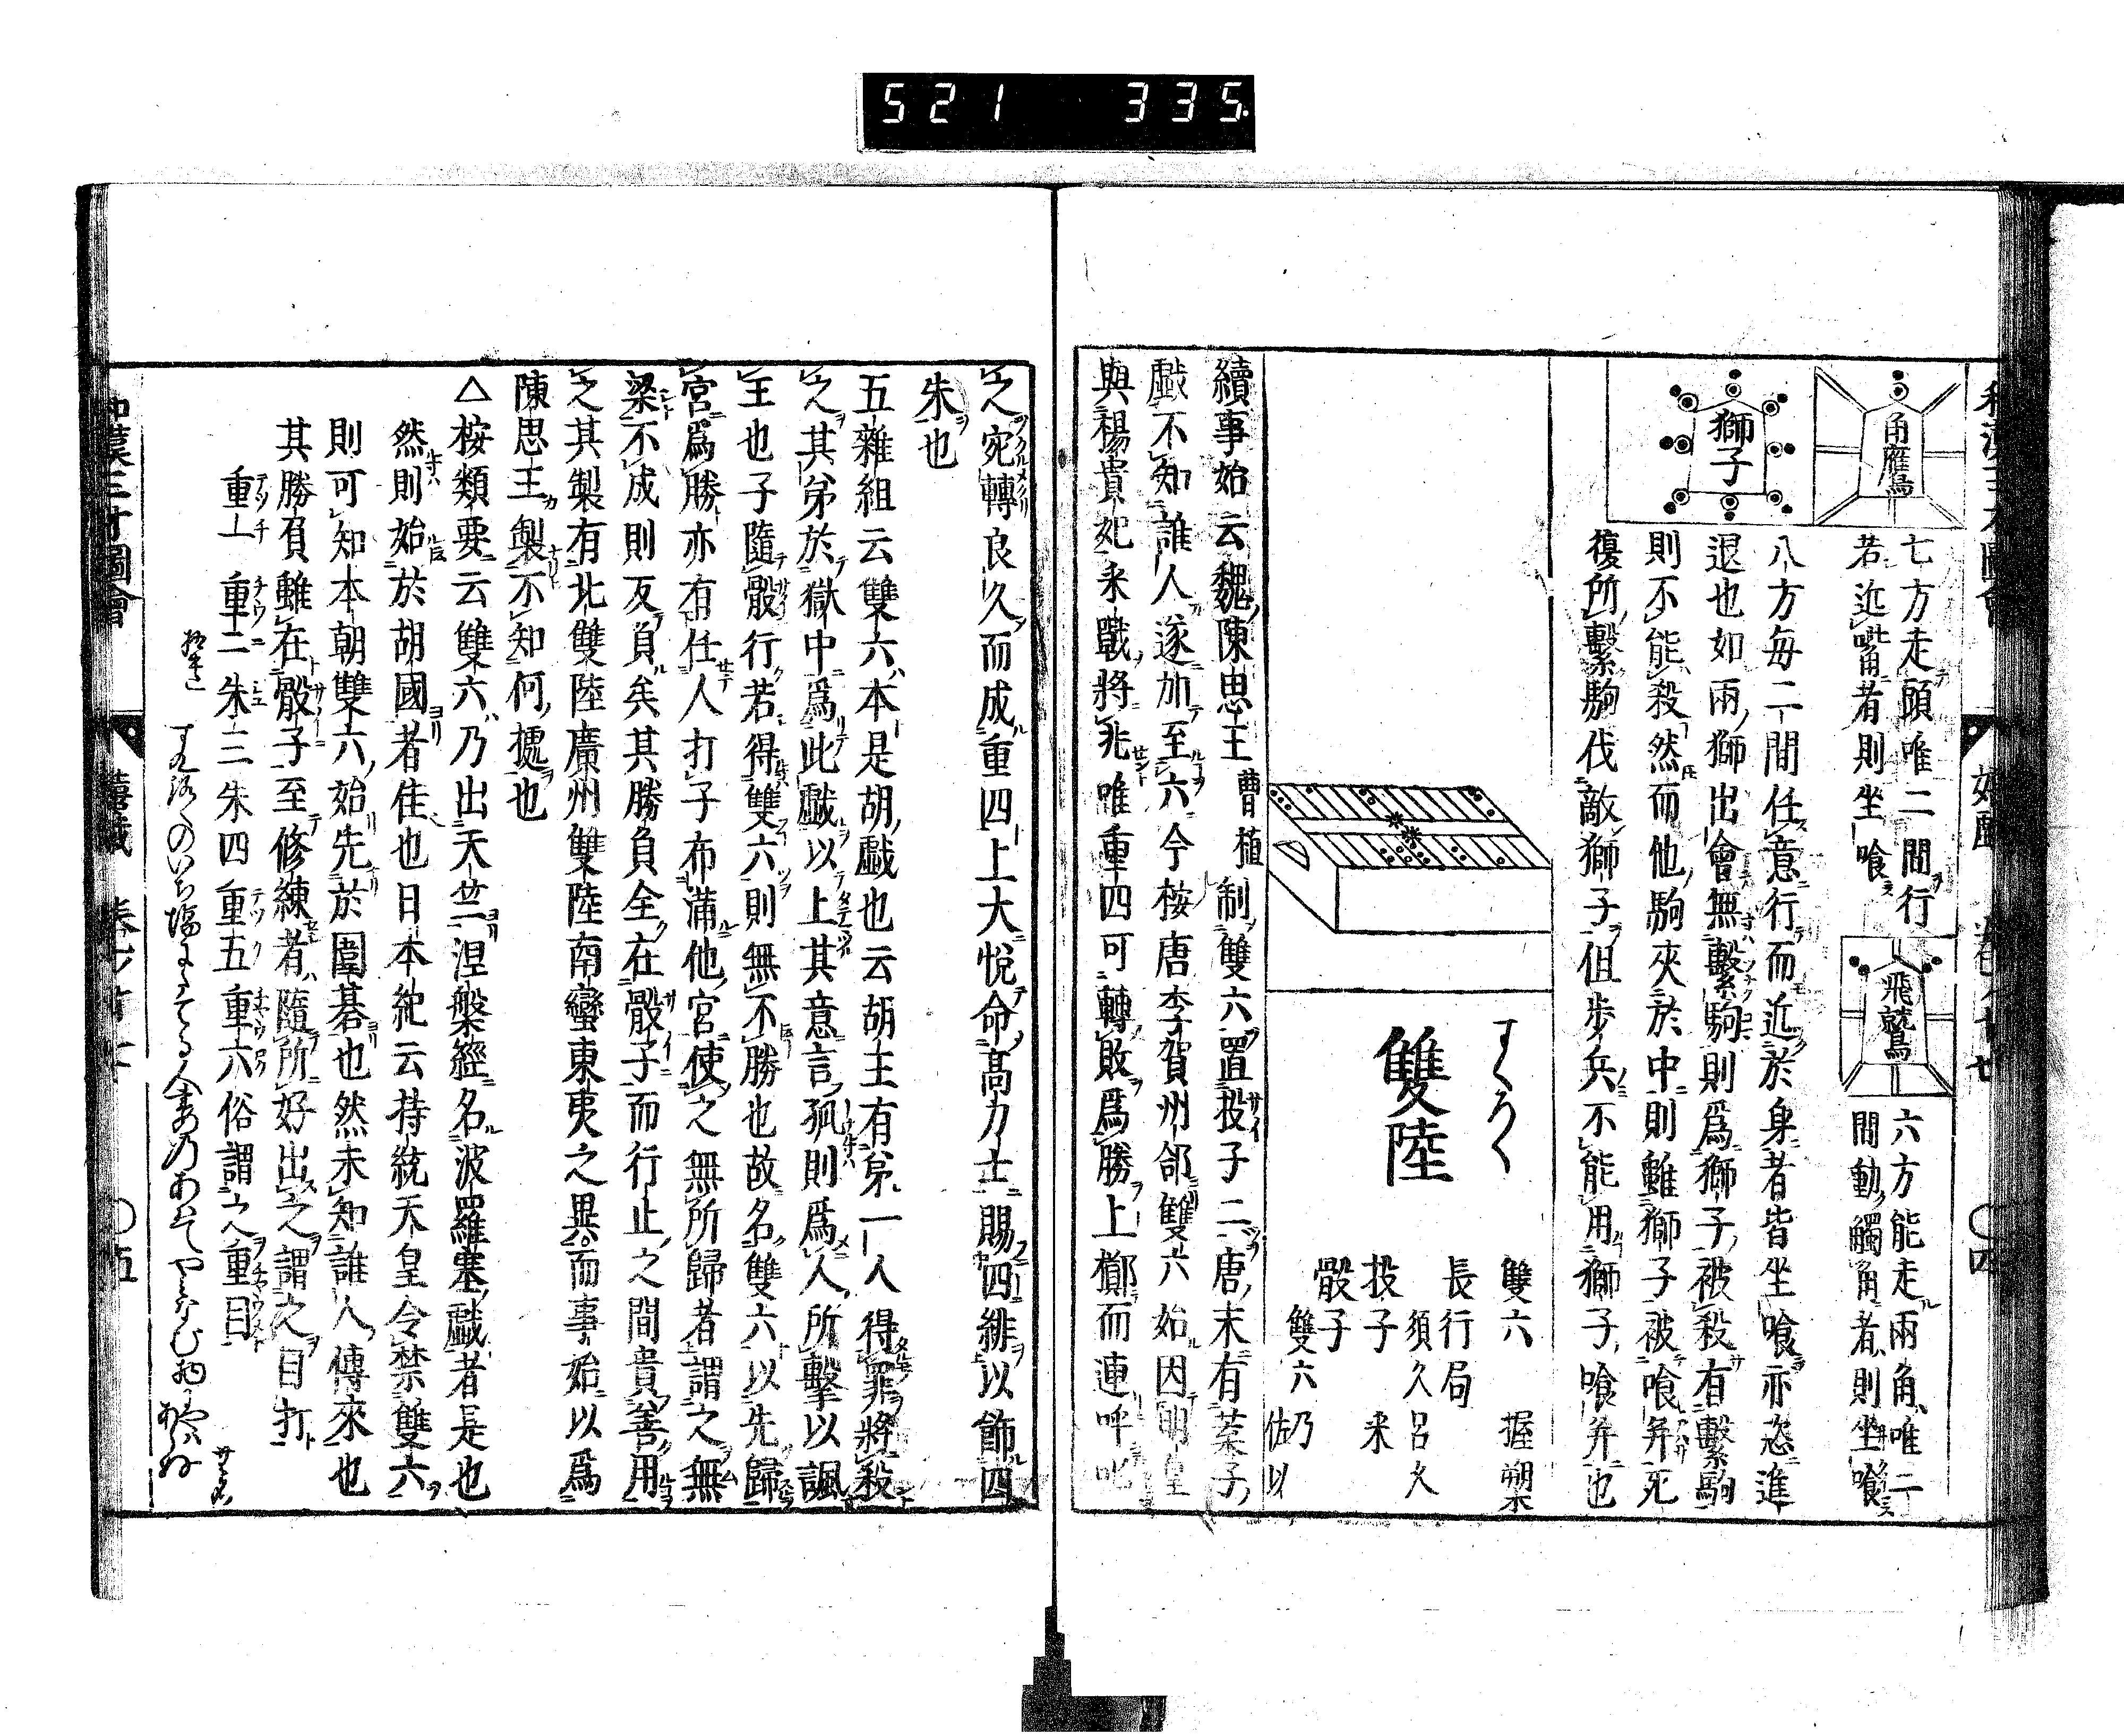 521 335.
角鷹
七方走頭唯二間行
若近嘴角者則坐喰
飛鷲
六方能走兩角唯二
間動觸角者則坐喰
獅子
八方每二間任意行而近於身者皆坐喰亦恣進
退也如兩獅出會無繫駒則爲獅子被殺有繫駒
則不能殺然而他駒夾於中則雖獅子被喰弁死
復所繫駒伐敵獅子但步兵不能用獅子喰弁也
すぐろく
雙陸
雙六 握槊
長行局
須久呂久
投子 来
骰子
雙六乃佐以
續事始云魏陳思王曹植制雙六置投子二唐末有葉子
戲不知誰人遂加至六今按唐李賀州郃雙六始因明皇
與楊貴妃采戰將北唯重四可轉敗爲勝上擲而連呼叱
之宛轉良久而成重四上大悅命高力士賜四緋以飾四
朱也
五雜組云雙六本是胡戲也云胡主有弟一人得罪將殺
之其弟於獄中爲此戲以上其意言孤則爲人所擊以諷
王也子隨骰行若得雙六則無不勝也故名雙六以先歸
宮爲勝亦有任人打子布滿他宮使之無所歸者謂之無
梁不成則反負矣其勝負全在骰子而行止之間貴善用
之其製有北雙陸廣州雙陸南蠻東夷之異而事始以爲
陳思王製不知何據也
△桉類要云雙六乃出天竺涅槃經名波羅塞戲者是也
然則始於胡國者佳也日本紀云持統天皇令禁雙六
則可知本朝雙六始先於圍碁也然未知誰人傳來也
其勝負雖在骰子至修練者隨所好出之謂之目打
重一 重二 朱三 朱四 重五 重六俗謂之重目
和漢三才圖會
嬉戲
五